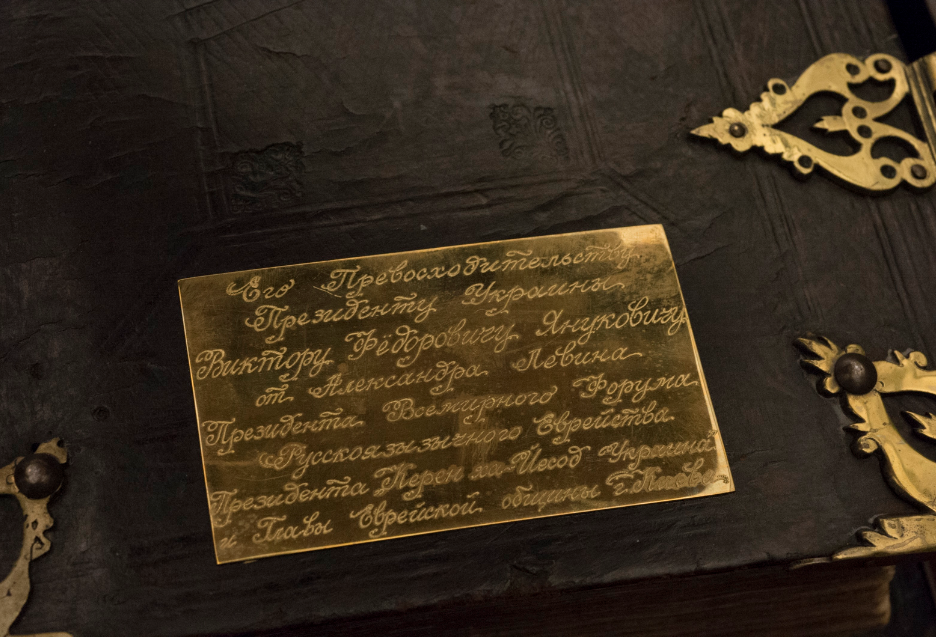 Его Превосходительству
Президенту Украины
Виктору Фёдоровичу Януковичу
от Александра Левина
Президента Всемирного Форума
Русскоязычного Еврейства
Президента Керен ха-Йесод Украины
и Главы Еврейской общины г. Киева